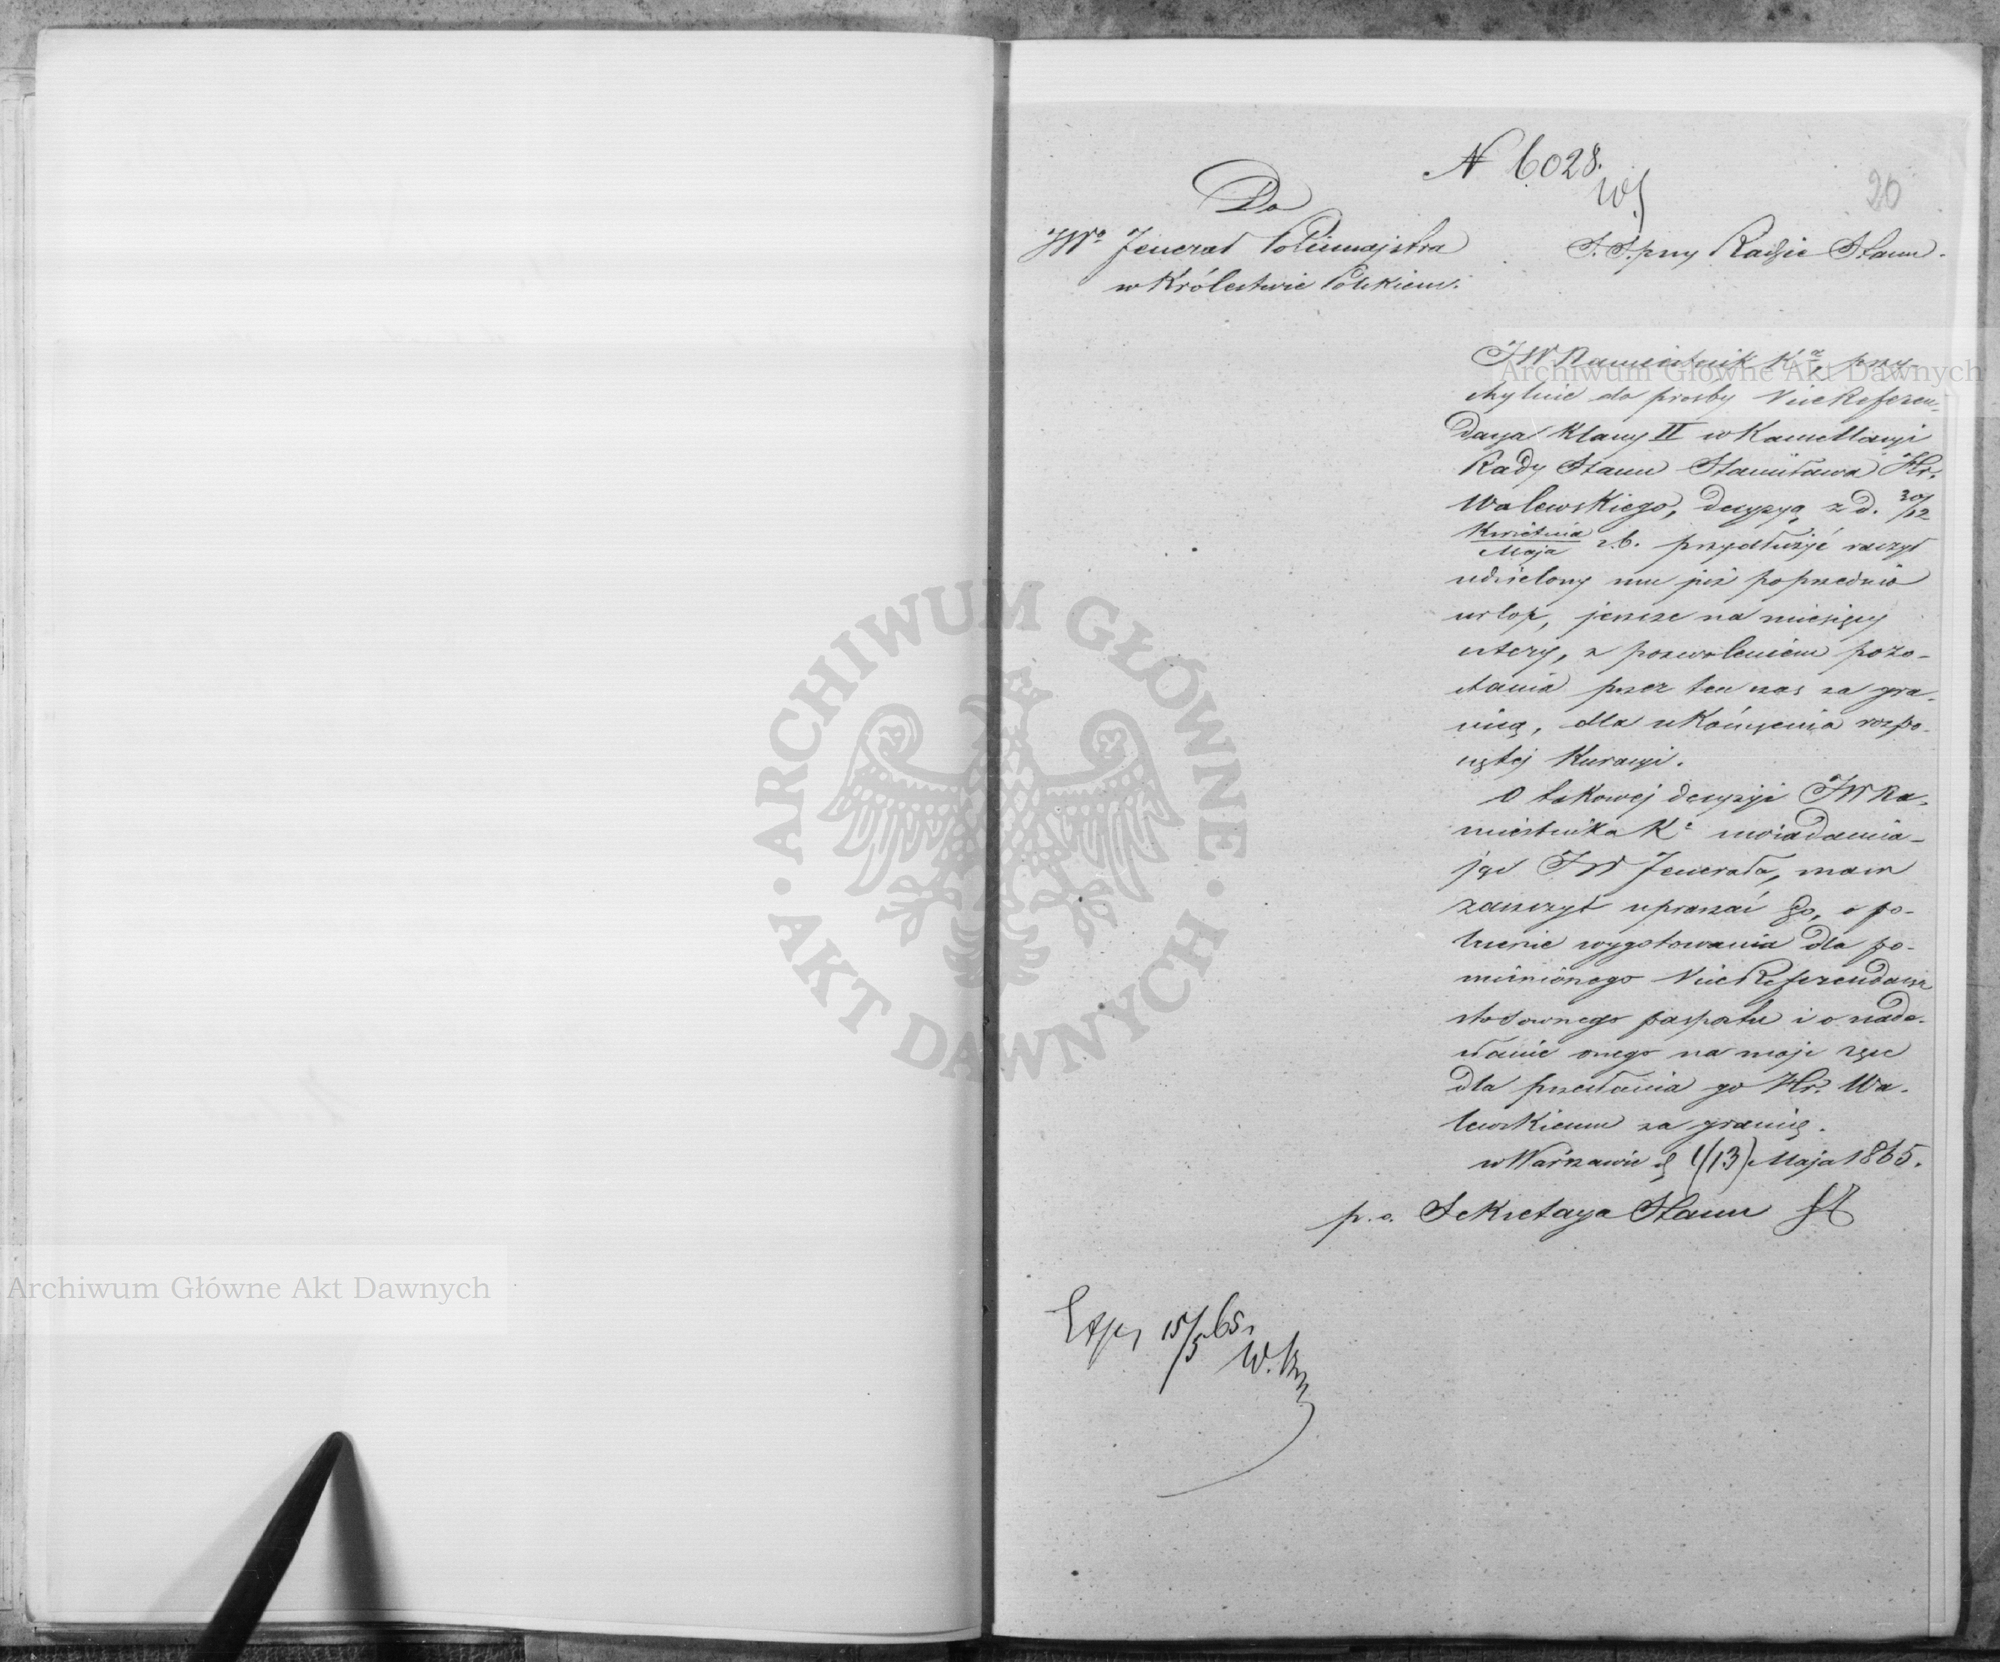 N 6028.
20
Do
JWo Jenerał Policmajstra
w Królestwie Polskiem.
S. S. przy Radzie Stanu.
JW Namiestnik Ka, przy-
chylnie do prośby ViceReferen-
darza Klassy II w Kancellaryi
Rady Stanu Stanisława Hr.
Walewskiego, decyzyą z d. 30/12
Kwietnia
Maja r.b. przedłużyć raczył
udzielony mu już poprzednio
urlop, jeszcze na miesięcy
cztery, z pozwoleniem pozo-
stania przez ten czas za gra-
nicą, dla ukończenia rozpo-
czętej Kuracyi.
O takowej decyzyi JW Na-
miestnika Ka uwiadamia-
jąc JW Jenerała, mam
zaszczyt upraszać Go, o po-
lecenie wygotowania dla po-
mienionego ViceReferendarza
stosownego paszportu i o nade-
słanie onego na moje ręce
dla przesłania go Hr. Wa-
lewskiemu za granicę.
w Warszawie d 1/13) Maja 1865.
p. o. Sekretarza Stanu
Exp, 15/5 65r
Archiwum Główne Akt Dawnych
Archiwum Główne Akt Dawnych
ARCHIWUM GŁÓWNE · AKT DAWNYCH ·